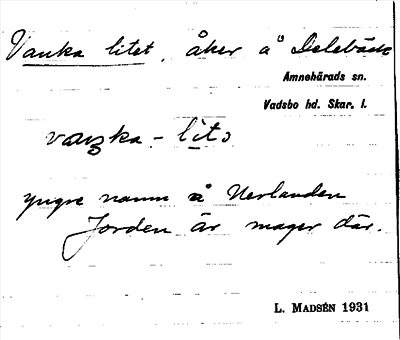 Vanka litet, åker å Delebäck
Amnehärads sn.
Vadsbo hd. Skar. l.
vaŋka - lito
yngre namn å Nerlanden
Jorden är mager där.
L. MADSÉN 1931